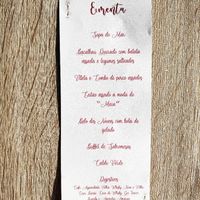 Ementa
Sopa do Mar
Bacalhau Dourado com batata
assada e legumes salteados
Vitela e Lombo de porco assados
Leitão assado à moda do
"Mário"
Bolo dos Noivos com bola de
gelado
Buffet de Sobremesas
Caldo Verde
Digestivos
Café, Aguardente Velha, Whisky